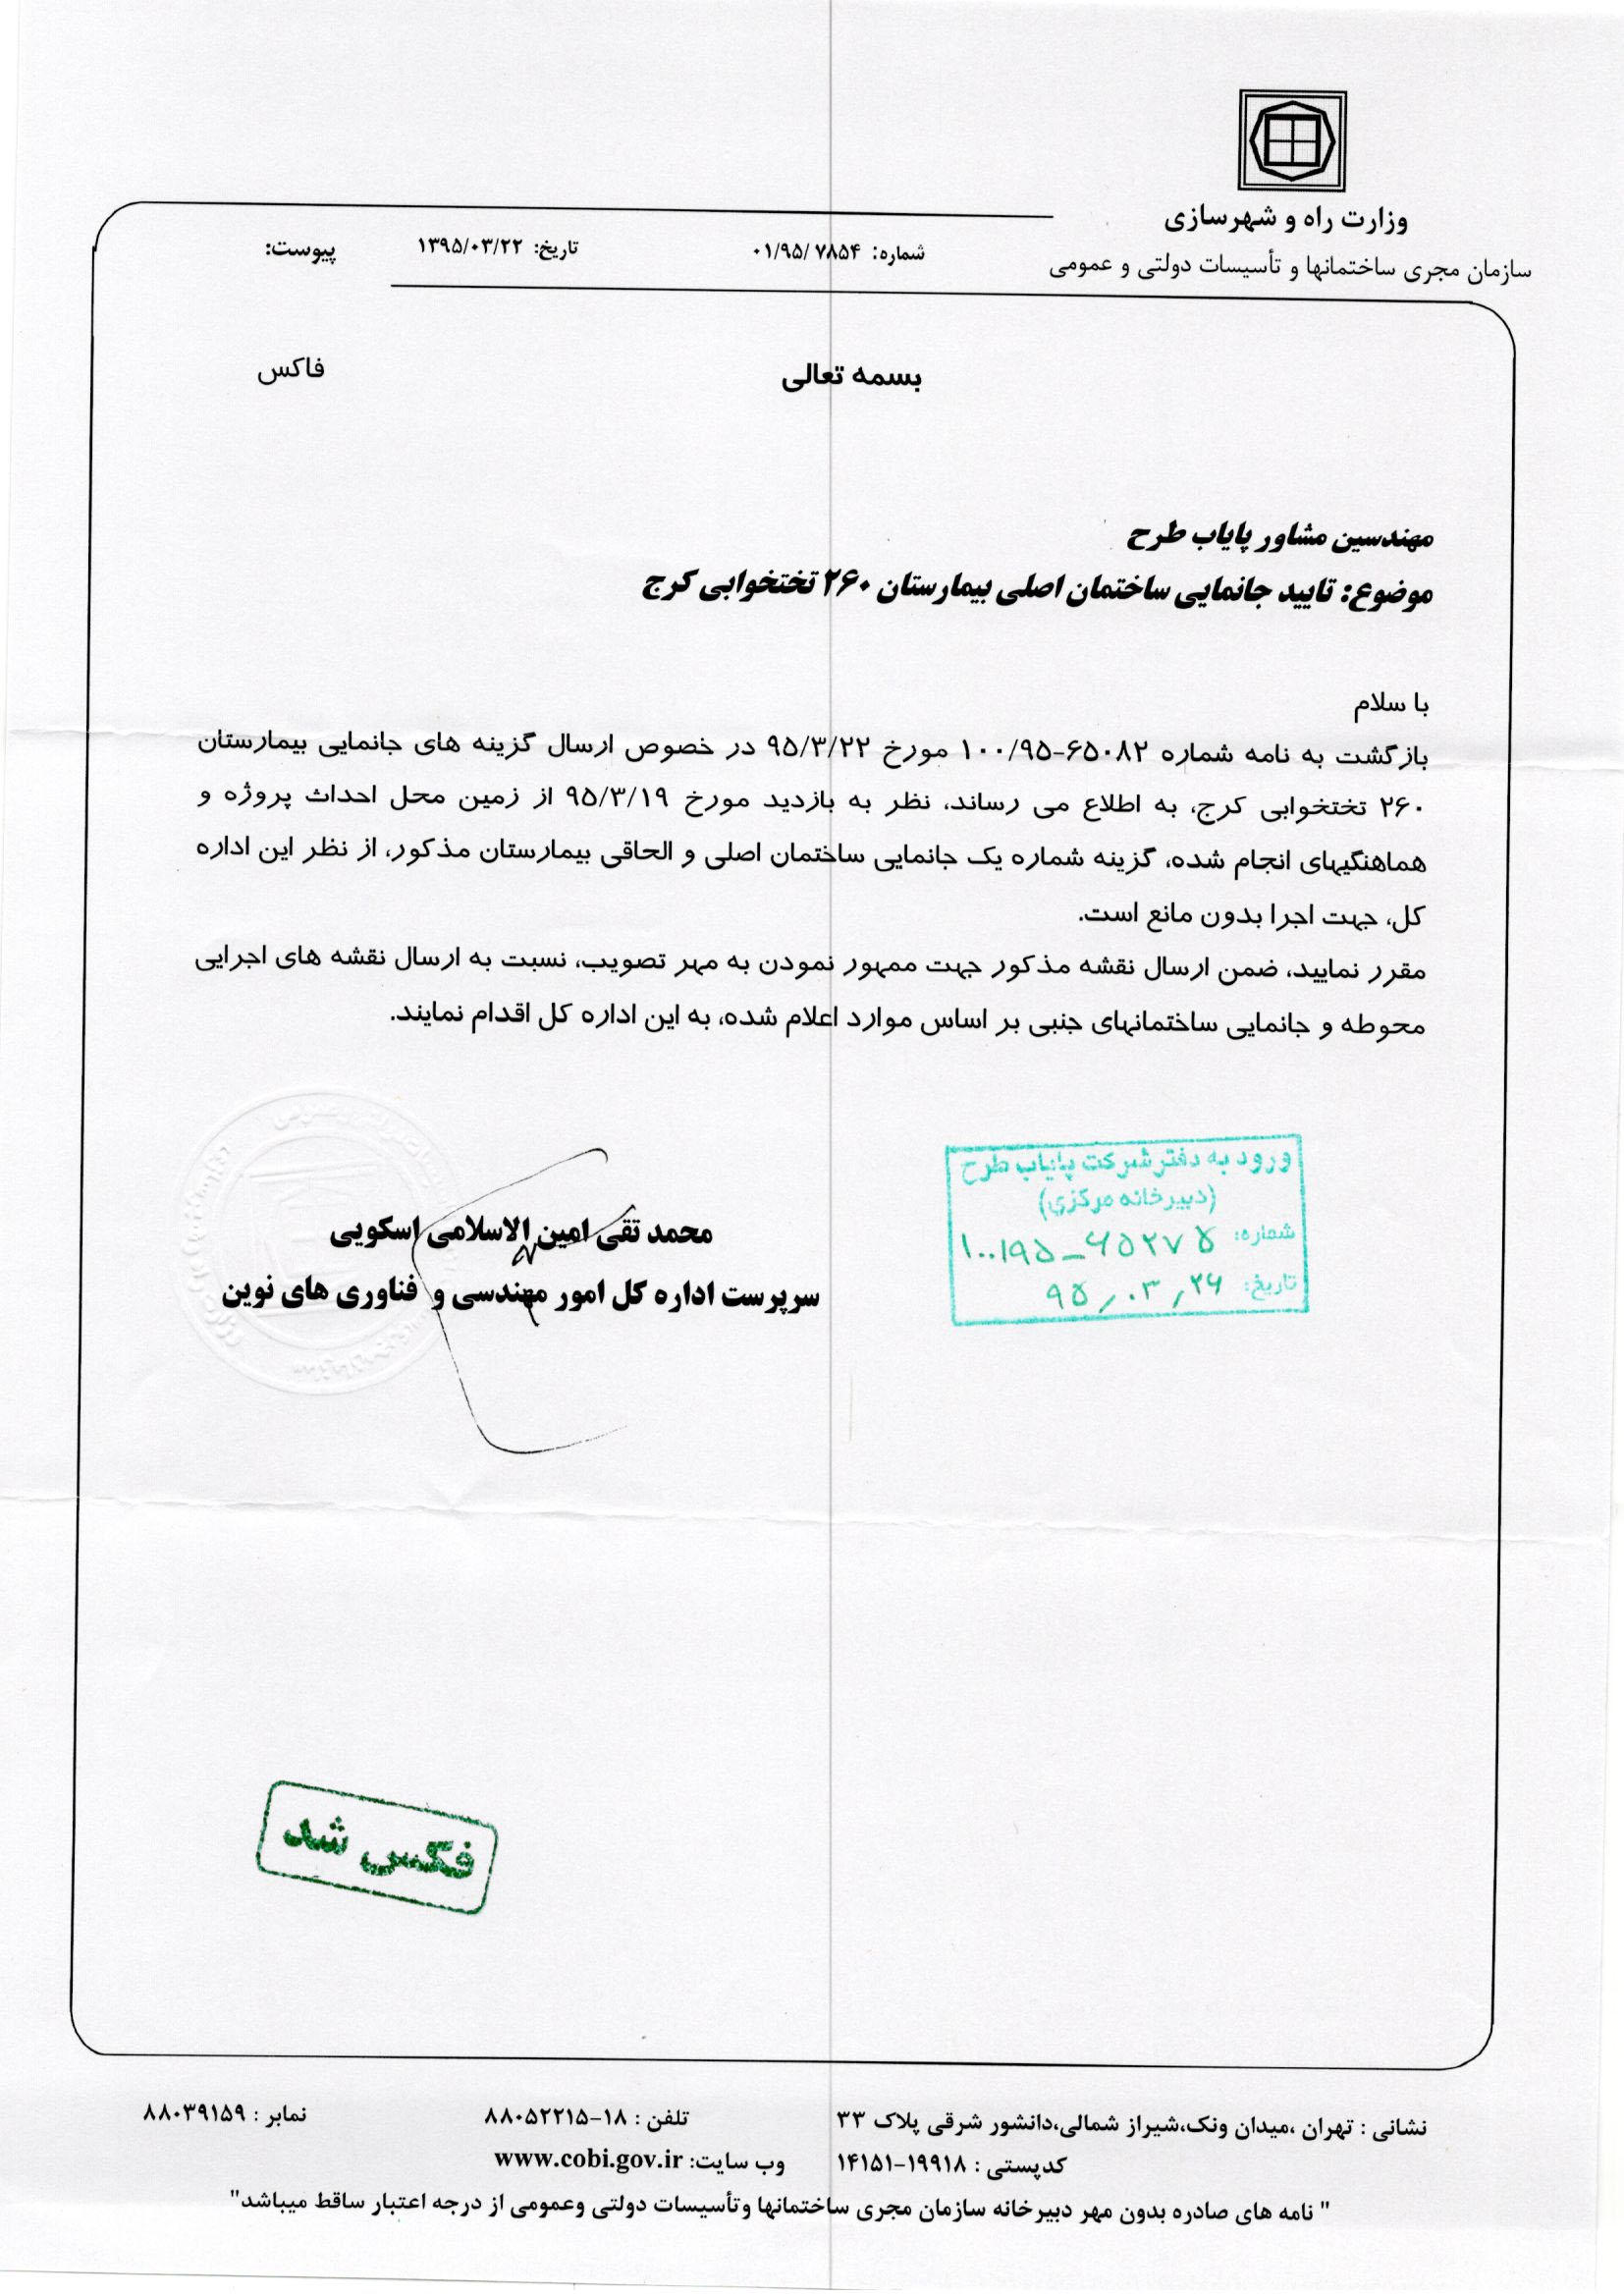 وزارت راه و شهرسازی
سازمان مجری ساختمانها و تأسیسات دولتی و عمومی
شماره: ۰۱/۹۵/ ۷۸۵۴
تاریخ: ۱۳۹۵/۰۳/۲۲
پیوست:
بسمه تعالی
فاکس
مهندسین مشاور پایاب طرح
موضوع: تایید جانمایی ساختمان اصلی بیمارستان ۲۶۰ تختخوابی کرج
با سلام
بازگشت به نامه شماره ۶۵۰۸۲-۱۰۰/۹۵ مورخ ۹۵/۳/۲۲ در خصوص ارسال گزینه های جانمایی بیمارستان
۲۶۰ تختخوابی کرج، به اطلاع می رساند، نظر به بازدید مورخ ۹۵/۳/۱۹ از زمین محل احداث پروژه و
هماهنگیهای انجام شده، گزینه شماره یک جانمایی ساختمان اصلی و الحاقی بیمارستان مذکور، از نظر این اداره
کل، جهت اجرا بدون مانع است.
مقرر نمایید، ضمن ارسال نقشه مذکور جهت ممهور نمودن به مهر تصویب، نسبت به ارسال نقشه های اجرایی
محوطه و جانمایی ساختمانهای جنبی بر اساس موارد اعلام شده، به این اداره کل اقدام نمایند.
ورود به دفتر شرکت پایاب طرح
(دبیرخانه مرکزی)
شماره: ۱۰۰/۹۵-۶۵۲۷۵
تاریخ: ۹۵/۰۳/۲۶
محمد تقی امین الاسلامی اسکویی
سرپرست اداره کل امور مهندسی و فناوری های نوین
فکس شد
نشانی : تهران ،میدان ونک،شیراز شمالی،دانشور شرقی پلاک ۳۳
تلفن : ۱۸-۸۸۰۵۲۲۱۵
نمابر : ۸۸۰۳۹۱۵۹
کدپستی : ۱۹۹۱۸-۱۴۱۵۱
وب سایت: www.cobi.gov.ir
" نامه های صادره بدون مهر دبیرخانه سازمان مجری ساختمانها وتأسیسات دولتی وعمومی از درجه اعتبار ساقط میباشد"